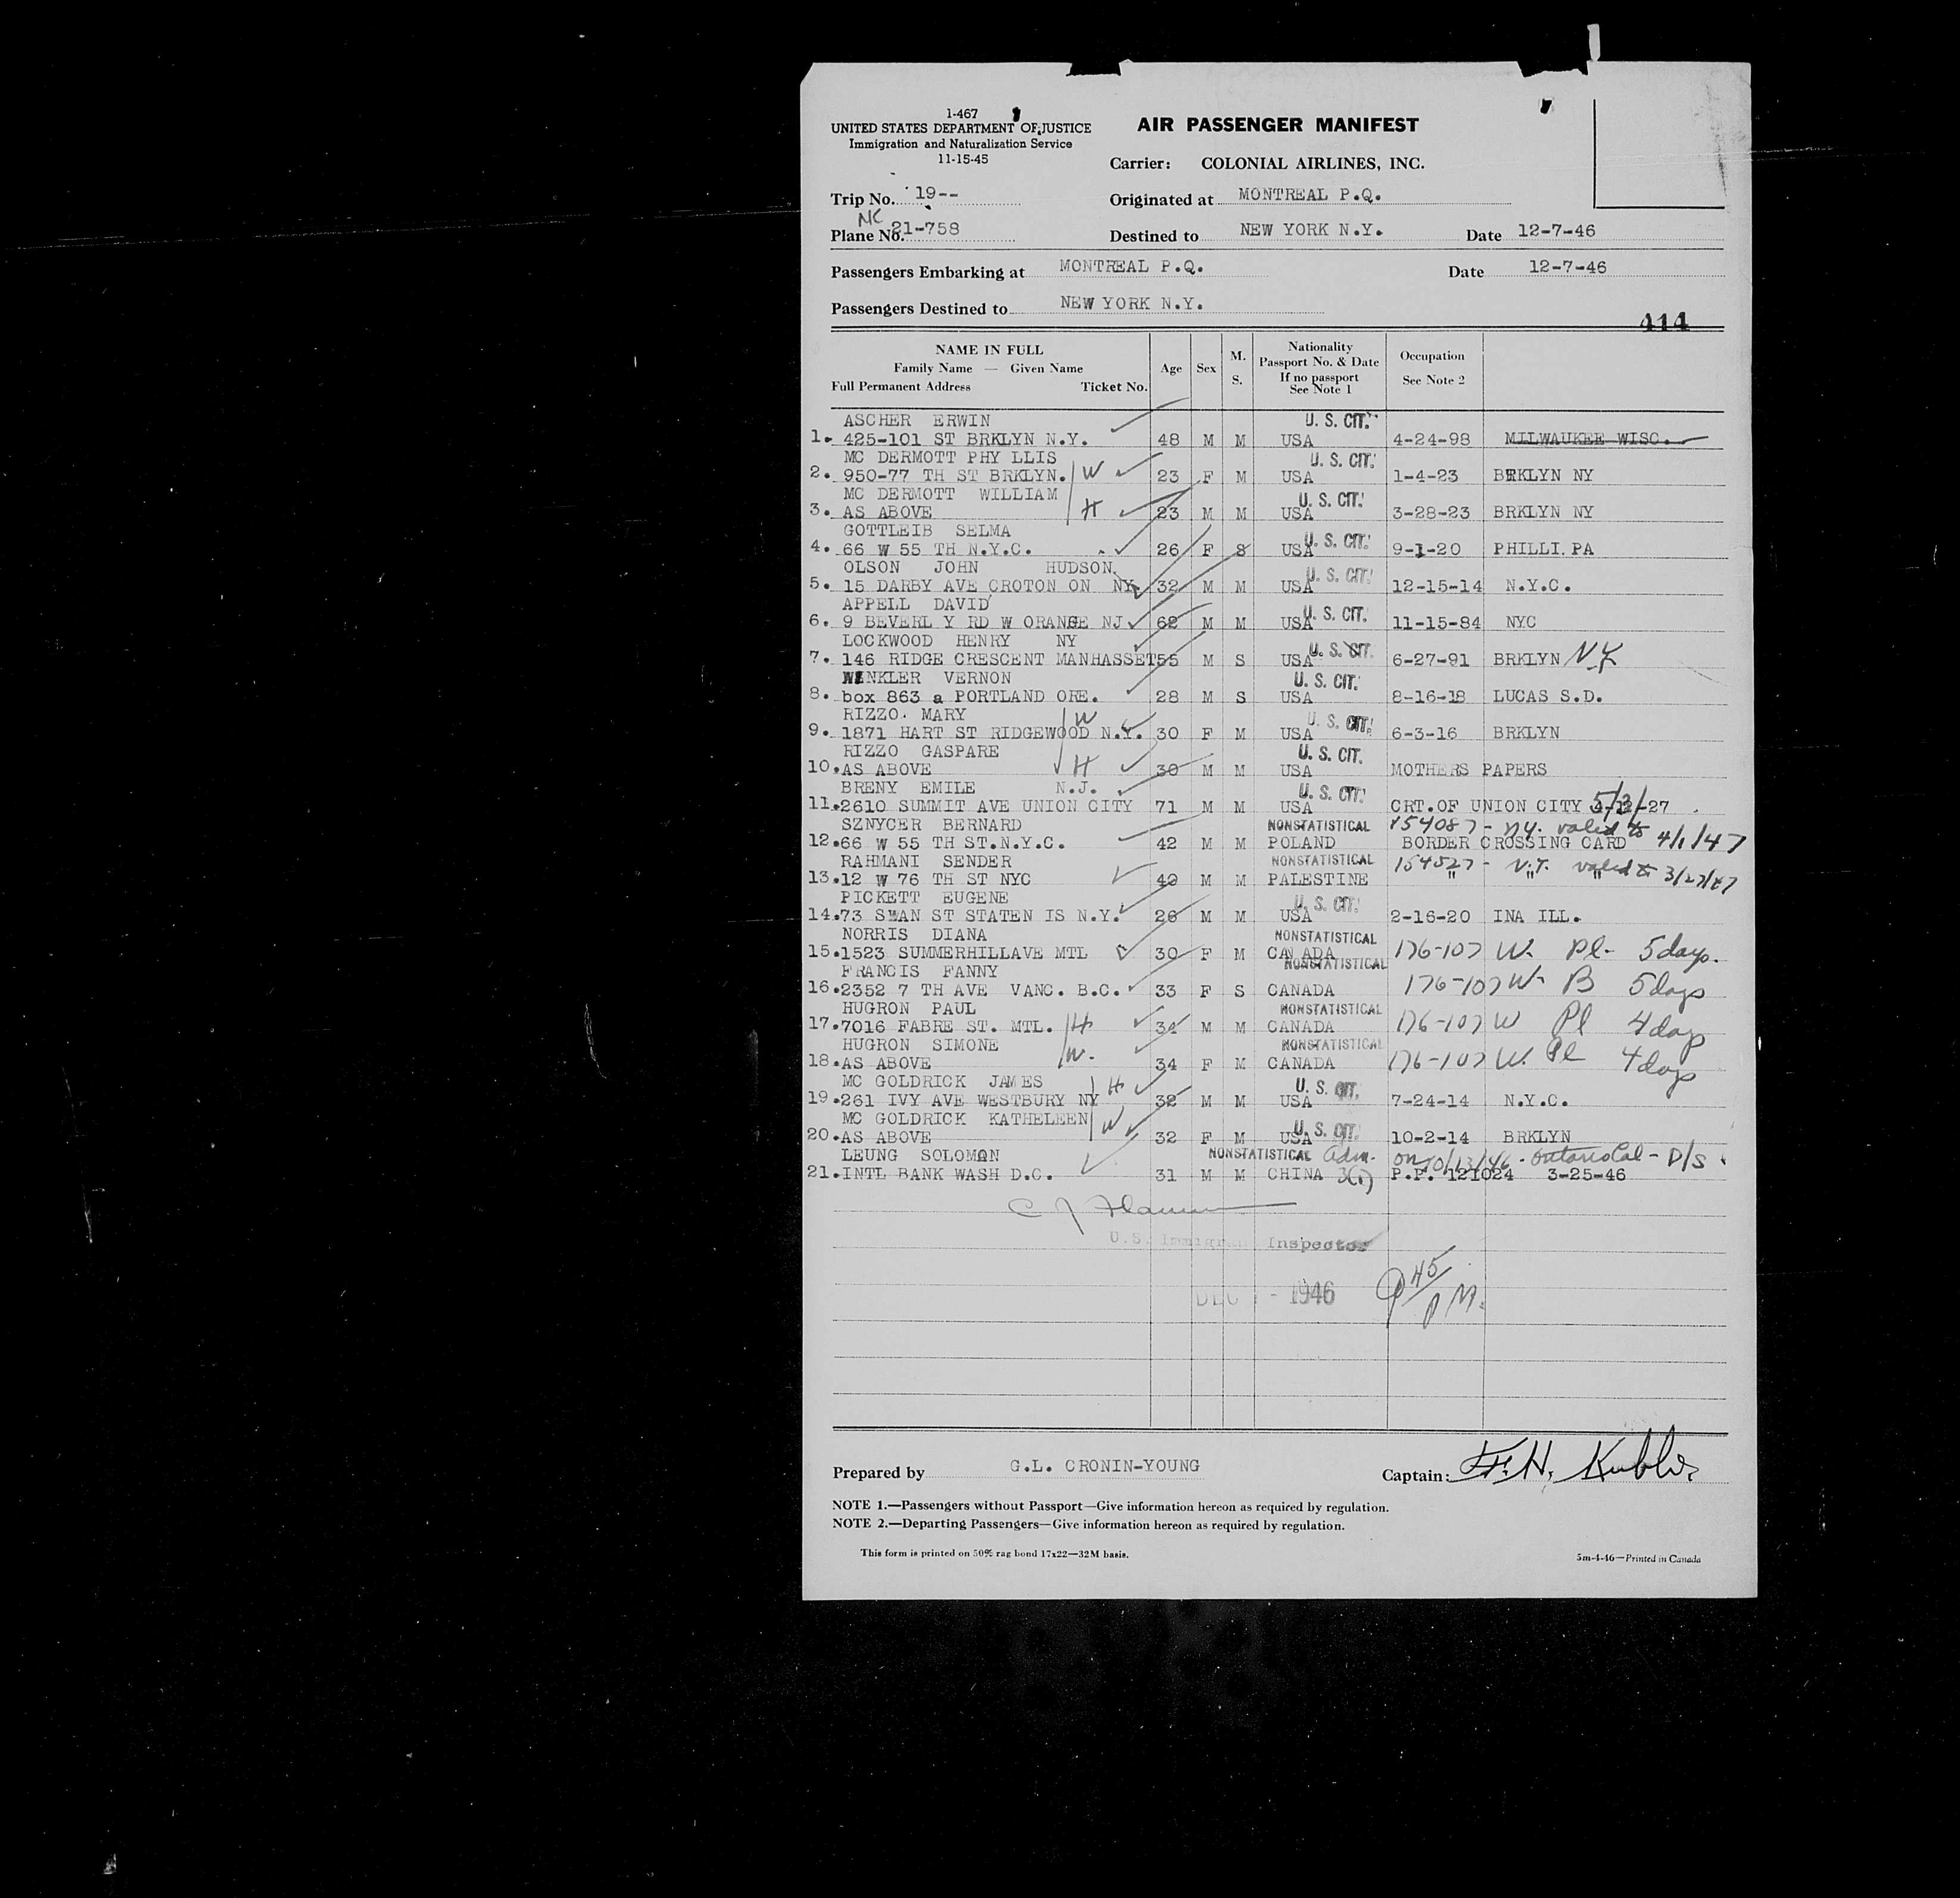 1-467
UNITED STATES DEPARTMENT OF JUSTICE
Immigration and Naturalization Service
11-15-45
AIR PASSENGER MANIFEST
Carrier: COLONIAL AIRLINES, INC.
Trip No. 19--
Originated at MONTREAL P.Q.
NC
Plane No. 21-758
Destined to NEW YORK N.Y. Date 12-7-46
Passengers Embarking at MONTREAL P.Q. Date 12-7-46
Passengers Destined to NEW YORK N.Y.
414
NAME IN FULL
Family Name — Given Name
Full Permanent Address Ticket No.
Age Sex M. S.
Nationality
Passport No. & Date
If no passport
See Note 1
Occupation
See Note 2
ASCHER ERWIN U. S. CIT.
1. 425-101 ST BRKLYN N.Y. 48 M M USA 4-24-98 MILWAUKEE WISC.
MC DERMOTT PHY LLIS U. S. CIT.
2. 950-77 TH ST BRKLYN. W 23 F M USA 1-4-23 BRKLYN NY
MC DERMOTT WILLIAM U. S. CIT.
3. AS ABOVE H 23 M M USA 3-28-23 BRKLYN NY
GOTTLEIB SELMA U. S. CIT.
4. 66 W 55 TH N.Y.C. 26 F S USA 9-1-20 PHILLI. PA
OLSON JOHN HUDSON U. S. CIT.
5. 15 DARBY AVE CROTON ON NY 32 M M USA 12-15-14 N.Y.C.
APPELL DAVID U. S. CIT.
6. 9 BEVERL Y RD W ORANGE NJ 62 M M USA 11-15-84 NYC
LOCKWOOD HENRY NY U. S. CIT.
7. 146 RIDGE CRESCENT MANHASSET 55 M S USA 6-27-91 BRKLYN N.Y.
WINKLER VERNON U. S. CIT.
8. box 863 a PORTLAND ORE. 28 M S USA 8-16-18 LUCAS S.D.
RIZZO. MARY W U. S. CIT.
9. 1871 HART ST RIDGEWOOD N.Y. 30 F M USA 6-3-16 BRKLYN
RIZZO GASPARE U. S. CIT.
10. AS ABOVE H 30 M M USA MOTHERS PAPERS
BRENY EMILE N.J. U. S. CIT.
11. 2610 SUMMIT AVE UNION CITY 71 M M USA CRT. OF UNION CITY 5/3/-27
SZNYCER BERNARD NONSTATISTICAL 154087 - N.Y. valid to 4/1/47
12. 66 W 55 TH ST.N.Y.C. 42 M M POLAND BORDER CROSSING CARD
RAHMANI SENDER NONSTATISTICAL 154527 - N.Y. valid to 3/27/47
13. 12 W 76 TH ST NYC 40 M M PALESTINE " " "
PICKETT EUGENE U. S. CIT.
14. 73 SWAN ST STATEN IS N.Y. 26 M M USA 2-16-20 INA ILL.
NORRIS DIANA NONSTATISTICAL
15. 1523 SUMMERHILLAVE MTL 30 F M CANADA 176-107 W. Pl- 5 days.
FRANCIS FANNY NONSTATISTICAL
16. 2352 7 TH AVE VANC. B.C. 33 F S CANADA 176-107 W- B 5 days
HUGRON PAUL NONSTATISTICAL
17. 7016 FABRE ST. MTL. H 34 M M CANADA 176-107 W Pl 4 days
HUGRON SIMONE NONSTATISTICAL
18. AS ABOVE W. 34 F M CANADA 176-107 W. Pl 4 days
MC GOLDRICK JAMES H U. S. CIT.
19. 261 IVY AVE WESTBURY NY 32 M M USA 7-24-14 N.Y.C.
MC GOLDRICK KATHELEEN W U. S. CIT.
20. AS ABOVE 32 F M USA 10-2-14 BRKLYN
LEUNG SOLOMON NONSTATISTICAL adm. on 10/13/46 - Ontario Cal - D/S
21. INTL BANK WASH D.C. 31 M M CHINA 3(1) P.P. 121024 3-25-46
U.S. Immigrant Inspector
DEC - 1946
9 45/PM.
Prepared by G.L. CRONIN-YOUNG
Captain: F.H. Kubler
NOTE 1.—Passengers without Passport—Give information hereon as required by regulation.
NOTE 2.—Departing Passengers—Give information hereon as required by regulation.
This form is printed on 50% rag bond 17x22—32M basis.
5m-4-46—Printed in Canada